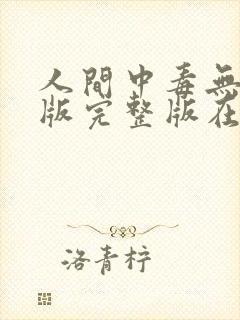 人間中毒無
版完整版在
洛青柠